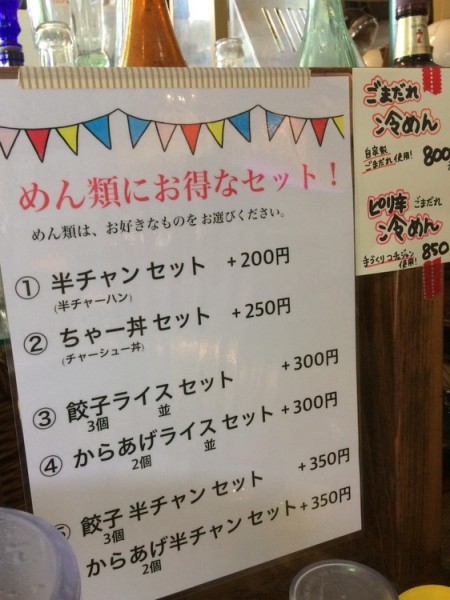 めん類にお得なセット！
めん類は、お好きなものをお選びください。
① 半チャン セット +200円
(半チャーハン)
② ちゃー丼 セット +250円
(チャーシュー丼)
③ 餃子ライス セット +300円
3個 並
④ からあげライス セット +300円
2個 並
⑤ 餃子 半チャン セット +350円
3個
からあげ半チャン セット +350円
2個
ごまだれ
冷めん
自家製
ごまだれ使用! 800
ピリ辛 ごまだれ
冷めん
手づくりコチュジャン
使用! 850